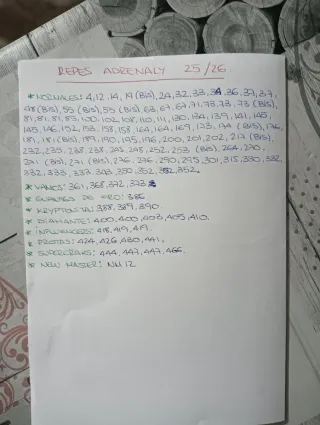 REPES ADRENALY 25/26
* NORMALES: 4, 12, 14, 19 (BIS), 24, 32, 33, 34, 36, 37, 37,
48 (BIS), 55 (BIS), 59 (BIS), 63, 67, 67, 71, 73, 73, 73 (BIS),
81, 81, 81, 83, 100, 102, 108, 110, 111, 130, 134, 139, 141, 145,
145, 146, 152, 153, 158, 158, 164, 164, 169, 173, 174 (BIS), 176,
181, 181 (BIS), 189, 190, 195, 196, 200, 201, 202, 217 (BIS),
232, 235, 238, 238, 243, 248, 252, 253 (BIS), 264, 270,
271 (BIS), 271 (BIS), 276, 276, 290, 295, 301, 315, 330, 332,
332, 333, 333, 343, 350, 352, 352, 352.
* VAMOS: 361, 368, 372, 373
* GUANTES DE ORO: 386
* KRYPTONITA: 388, 389, 390
* DIAMANTE: 400, 400, 403, 405, 410.
* INFLUENCERS: 418, 419, 419.
* PROTAS: 424, 426, 430, 441.
* SUPERCRAKS: 444, 447, 447, 466.
* NEW MASTER: NM 12